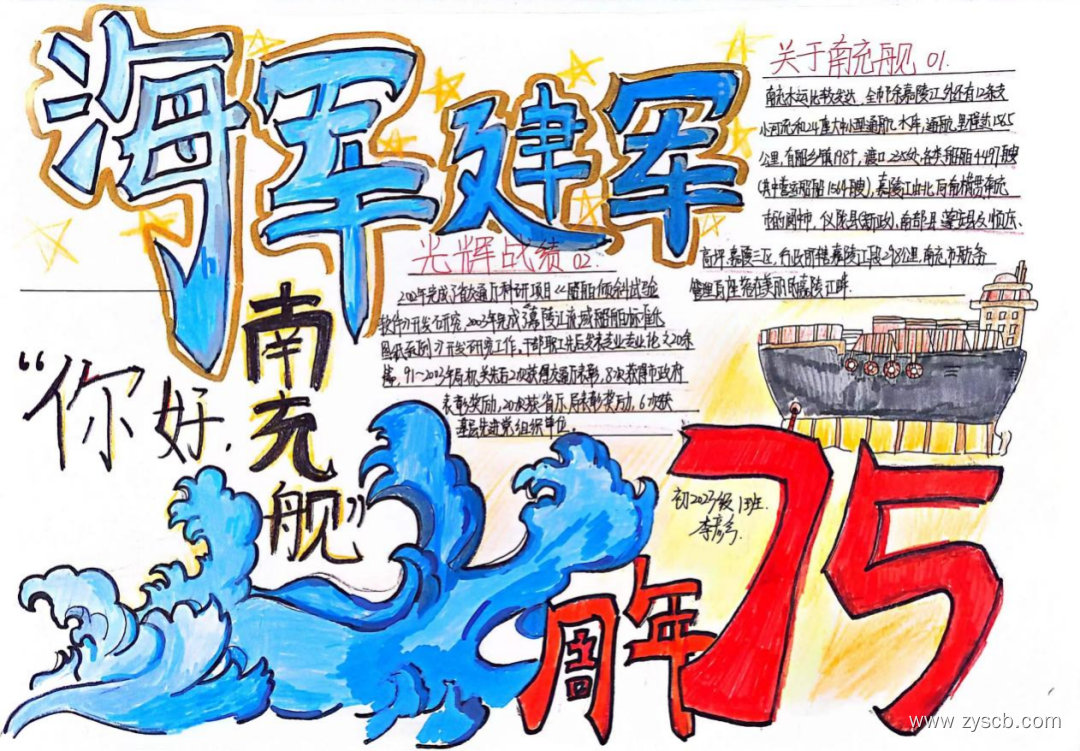 海军建军
关于南充舰 01.
南充水运比较发达,全市除嘉陵江外还有12条支
小河流和24座大中小型通航水库,通航里程达1565
公里,有船乡镇198个,渡口235处,各类船舶4497艘
(其中营运船舶1564艘),嘉陵江由北向南横贯南充
市的阆中、仪陇县(新政)、南部县、蓬安县及顺庆、
高坪、嘉陵三区,行政所辖嘉陵江段298公里,南充市航务
管理局座落在美丽的嘉陵江畔
光辉战绩 02.
2002年完成了省交通厅科研项目“船舶倾斜试验
软件”开发研究,2003年完成了嘉陵江流域船舶标准化
图纸系列开发研究工作,干部职工先后发表专业
91~2003年局机关先后2次获得交通厅表彰,8次获得市政府
表彰奖励,20次获省厅局表彰奖励,6次获
基层先进党组织单位。
“你好,
南充舰”
初2023级13班.
周年75
www.zyscb.com